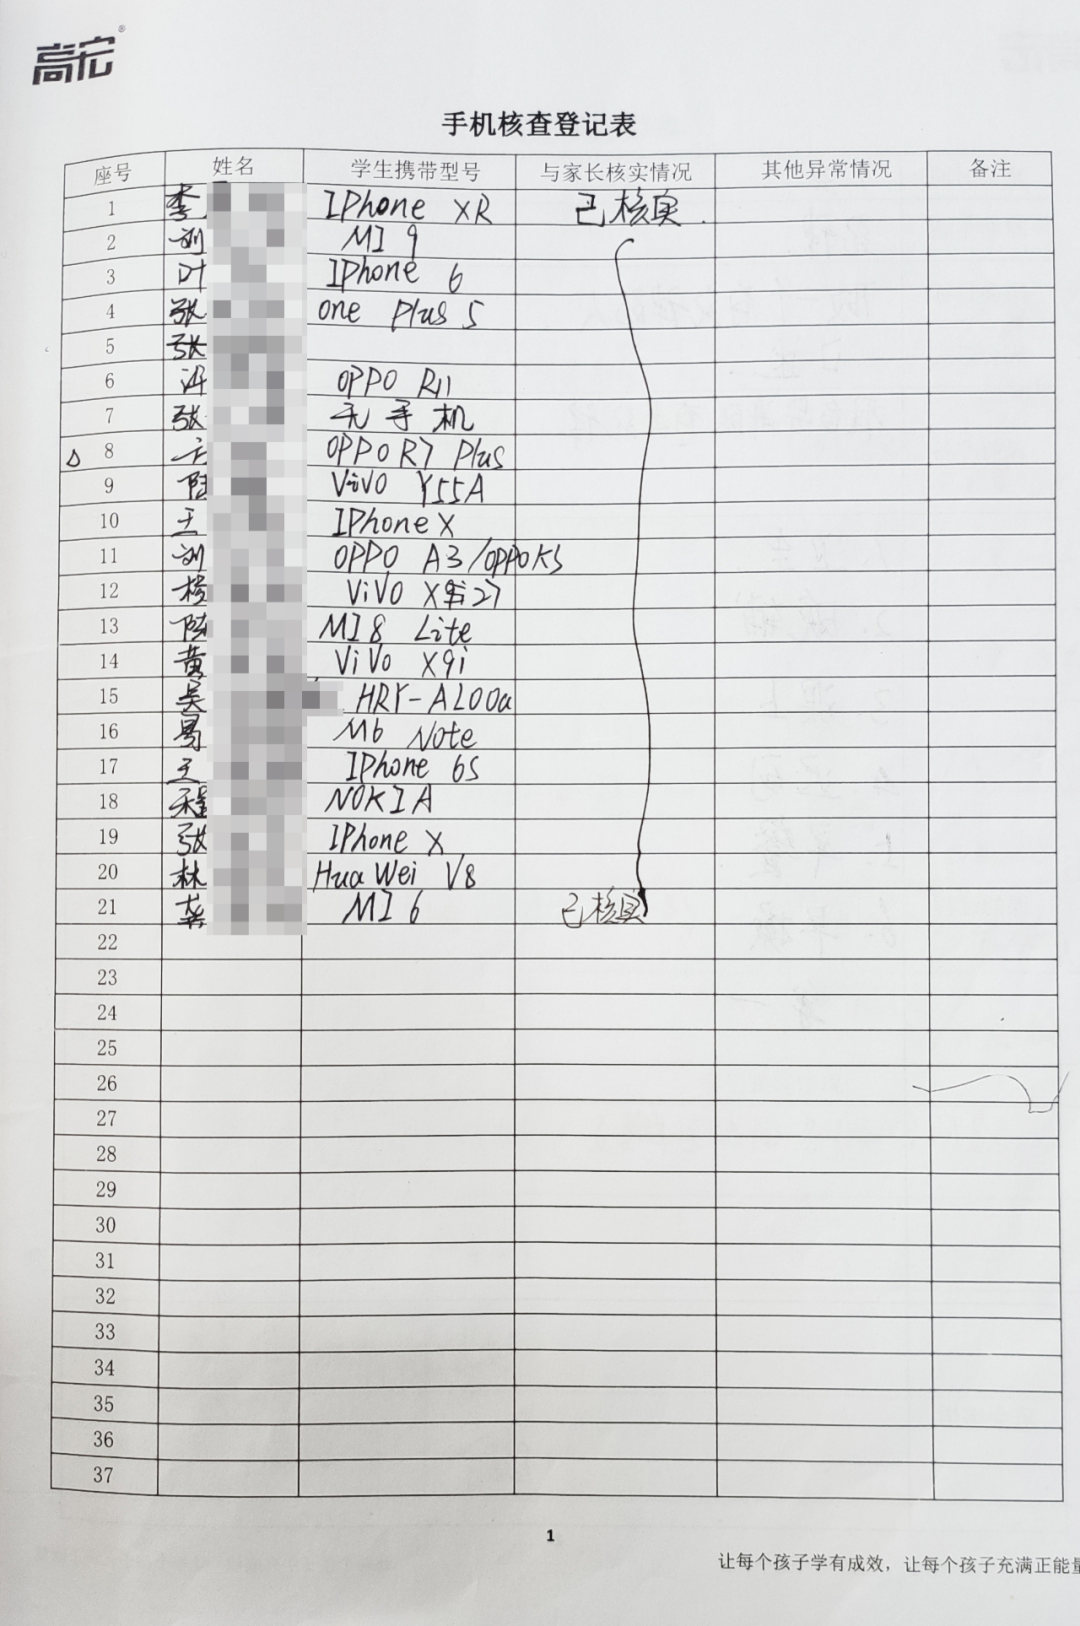 高宏®
手机核查登记表
座号 姓名 学生携带型号 与家长核实情况 其他异常情况 备注
1 李 IPhone XR 已核实.
2 刘 MI 9
3 叶 IPhone 6
4 张 one Plus 5
5 张
6 许 OPPO R11
7 张 无手机
△ 8 OPPO R7 Plus
9 陆 ViVO Y55A
10 王 IPhone X
11 刘 OPPO A3/OPPO K5
12 杨 ViVO X 27
13 陈 MI 8 Lite
14 黄 ViVo X9i
15 吴 HRY-AL00a
16 易 M6 Note
17 王 IPhone 6S
18 程 NOKIA
19 张 IPhone X
20 林 HuaWei V8
21 龚 MI 6 已核实
22
23
24
25
26
27
28
29
30
31
32
33
34
35
36
37
1
让每个孩子学有成效，让每个孩子充满正能量